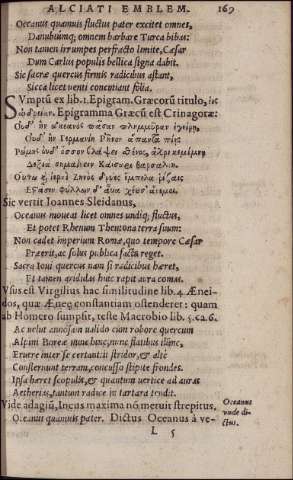 ALCIATI EMBLEM. 169
Oceanus quamuis fluctus pater excitet omnes,
Danubiumq; omnem barbare Turca bibas:
Non tamen irrumpes perfracto limite, Cæsar
Dum Carlus populis bellica signa dabit.
Sic sacræ quercus firmis radicibus astant,
Sicca licet venti concutiant folia.
Sumptū ex lib. 1. Epigram. Græcorū titulo, εἰς
Epigramma Græcū est Crinagoræ:
Οὐδ' ἢν ὠκεανὸς πᾶσαν πλημμύραν ἐγείρῃ,
Οὐδ' ἢν Γερμανίη Ῥῆνον ἅπαντα πίῃ,
Ῥώμης οὐδ' ὅσσον βλάψει σθένος, ἄχρι κε μίμνῃ
Δεξιὰ σημαίνειν Καίσαρι θαρσαλέη.
Οὕτω χ' ἱεραὶ Ζηνὸς δρύες ἔμπεδα ῥίζαις
Ἑστᾶσιν, φύλλων δ' αὖα χέουσ' ἄνεμοι.
Sic vertit Ioannes Sleidanus,
Oceanus moueat licet omnes undiq; fluctus,
Et potet Rhenum Theutona terra suum:
Non cadet imperium Romæ, quo tempore Cæsar
Præerit, ac solus publica facta reget.
Sacra Ioui quercus nam si radicibus hæret,
Et tamen aridulas huc rapit aura comas.
Vsus est Virgilius hac similitudine lib. 4. Ænei-
dos, quæ Æneæ constantiam ostenderet: quam
ab Homero sumpsit, teste Macrobio lib. 5. ca. 6.
Ac velut annosam valido cùm robore quercum
Alpini Boreæ nunc hinc, nunc flatibus illinc,
Eruere inter se certant: it stridor, & altè
Consternunt terram, concusso stipite frondes.
Ipsa hæret scopulis, & quantum vertice ad auras
Aetherias, tantum radice in tartara tendit.
Vide adagiū, Incus maxima nō metuit strepitus.
Oceanus quamuis pater. Dictus Oceanus à ve-
Oceanus
vnde di-
ctus.
L 5